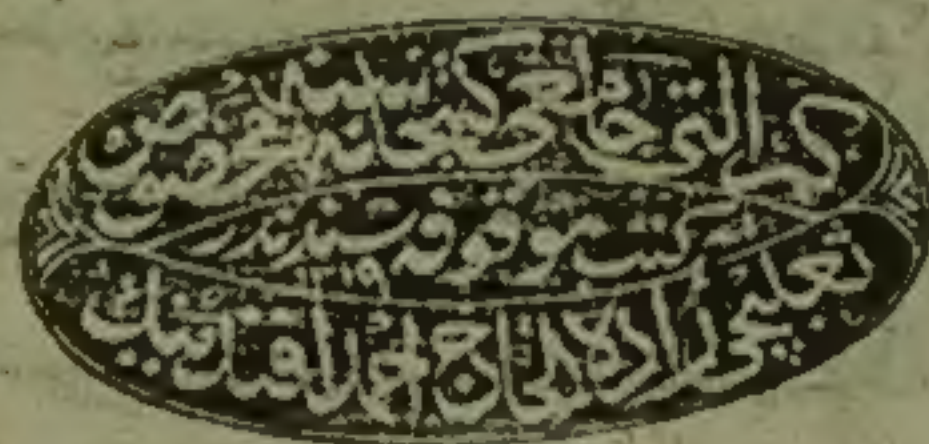 كمر التى جامعى كتبخانه سنه مخصوص
كتب موقوفه سندندر
١٣١٩
زاده الحاج احمد افندينك